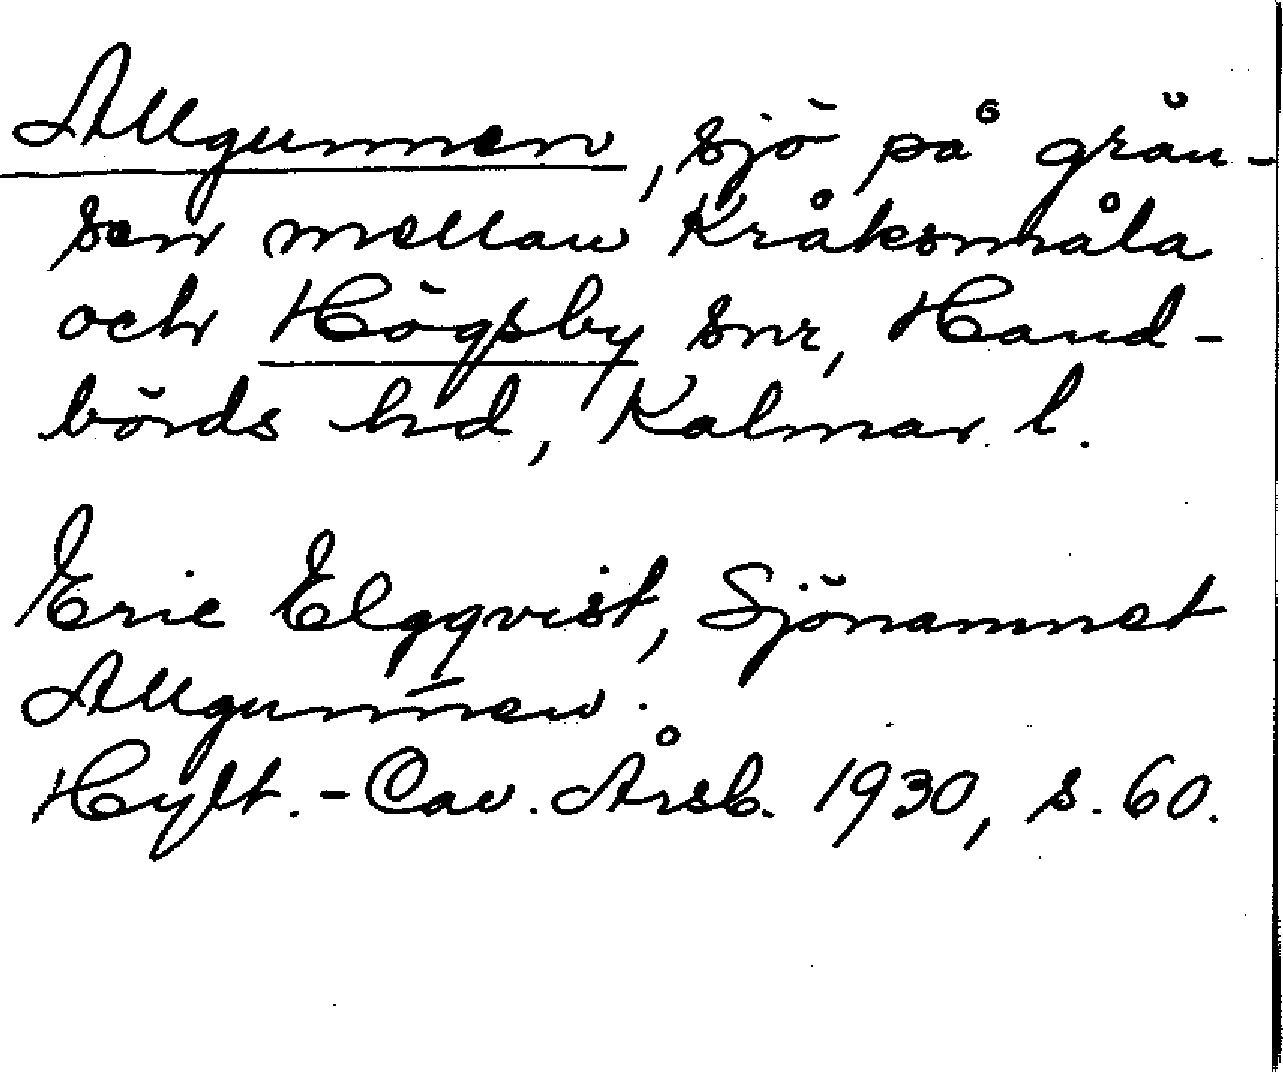 Allgunnen, sjö på grän-
sen mellan Kråksmåla
och Högsby snr, Hand-
börds hd, Kalmar l.
Eric Elgqvist, Sjönamnet
Allgunnen.
Hylt.-Cav. Årsb. 1930, s. 60.